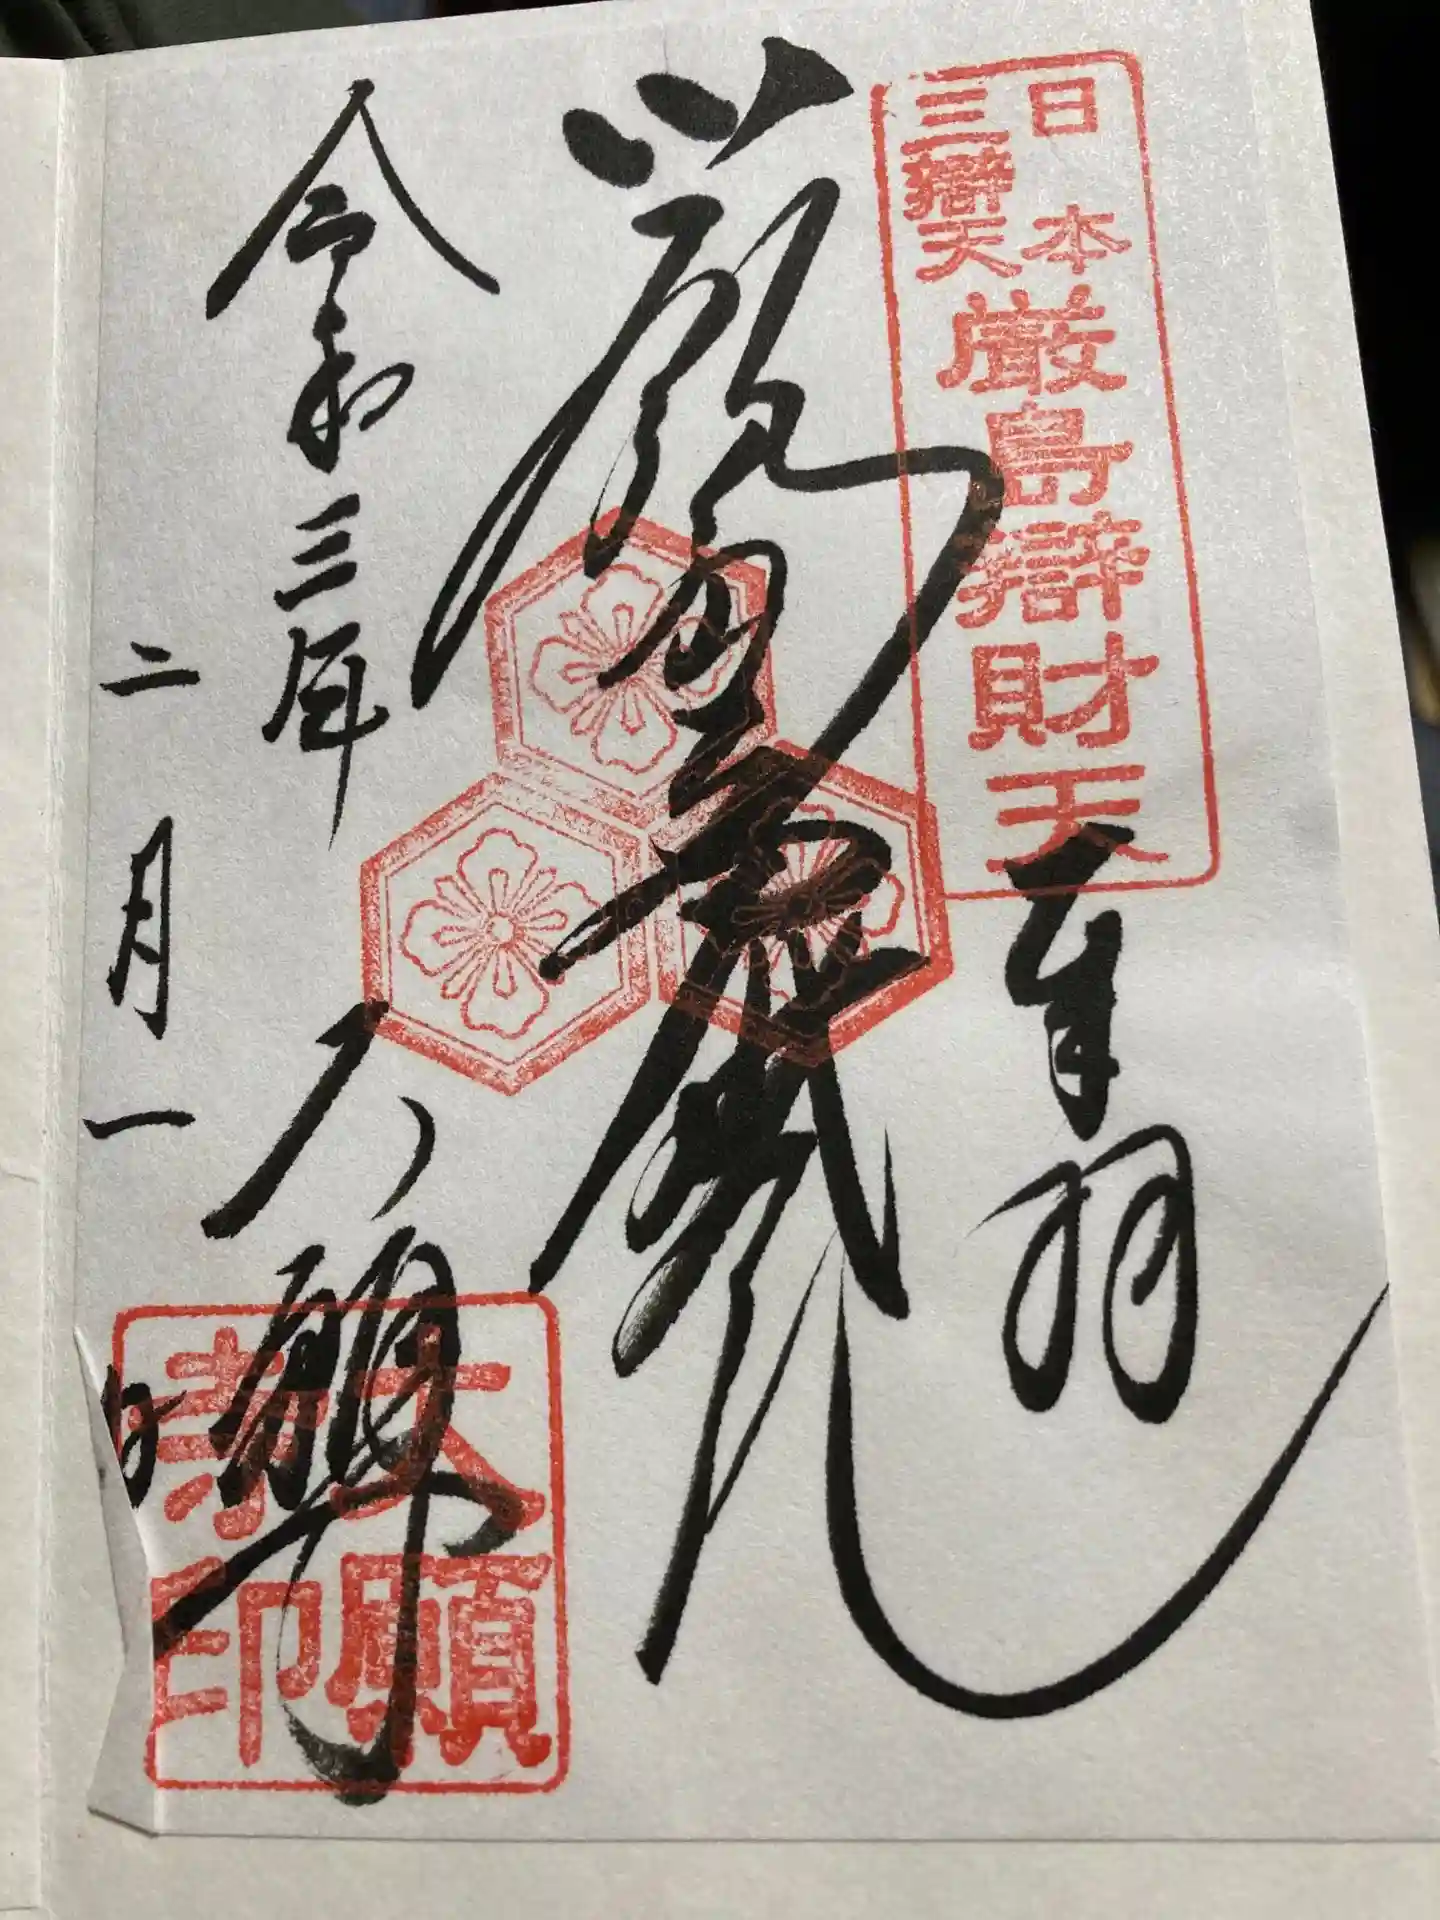 日本
三辯天
厳島辯財天
奉拝
令和三年
二月一日
大願寺
大願
寺印